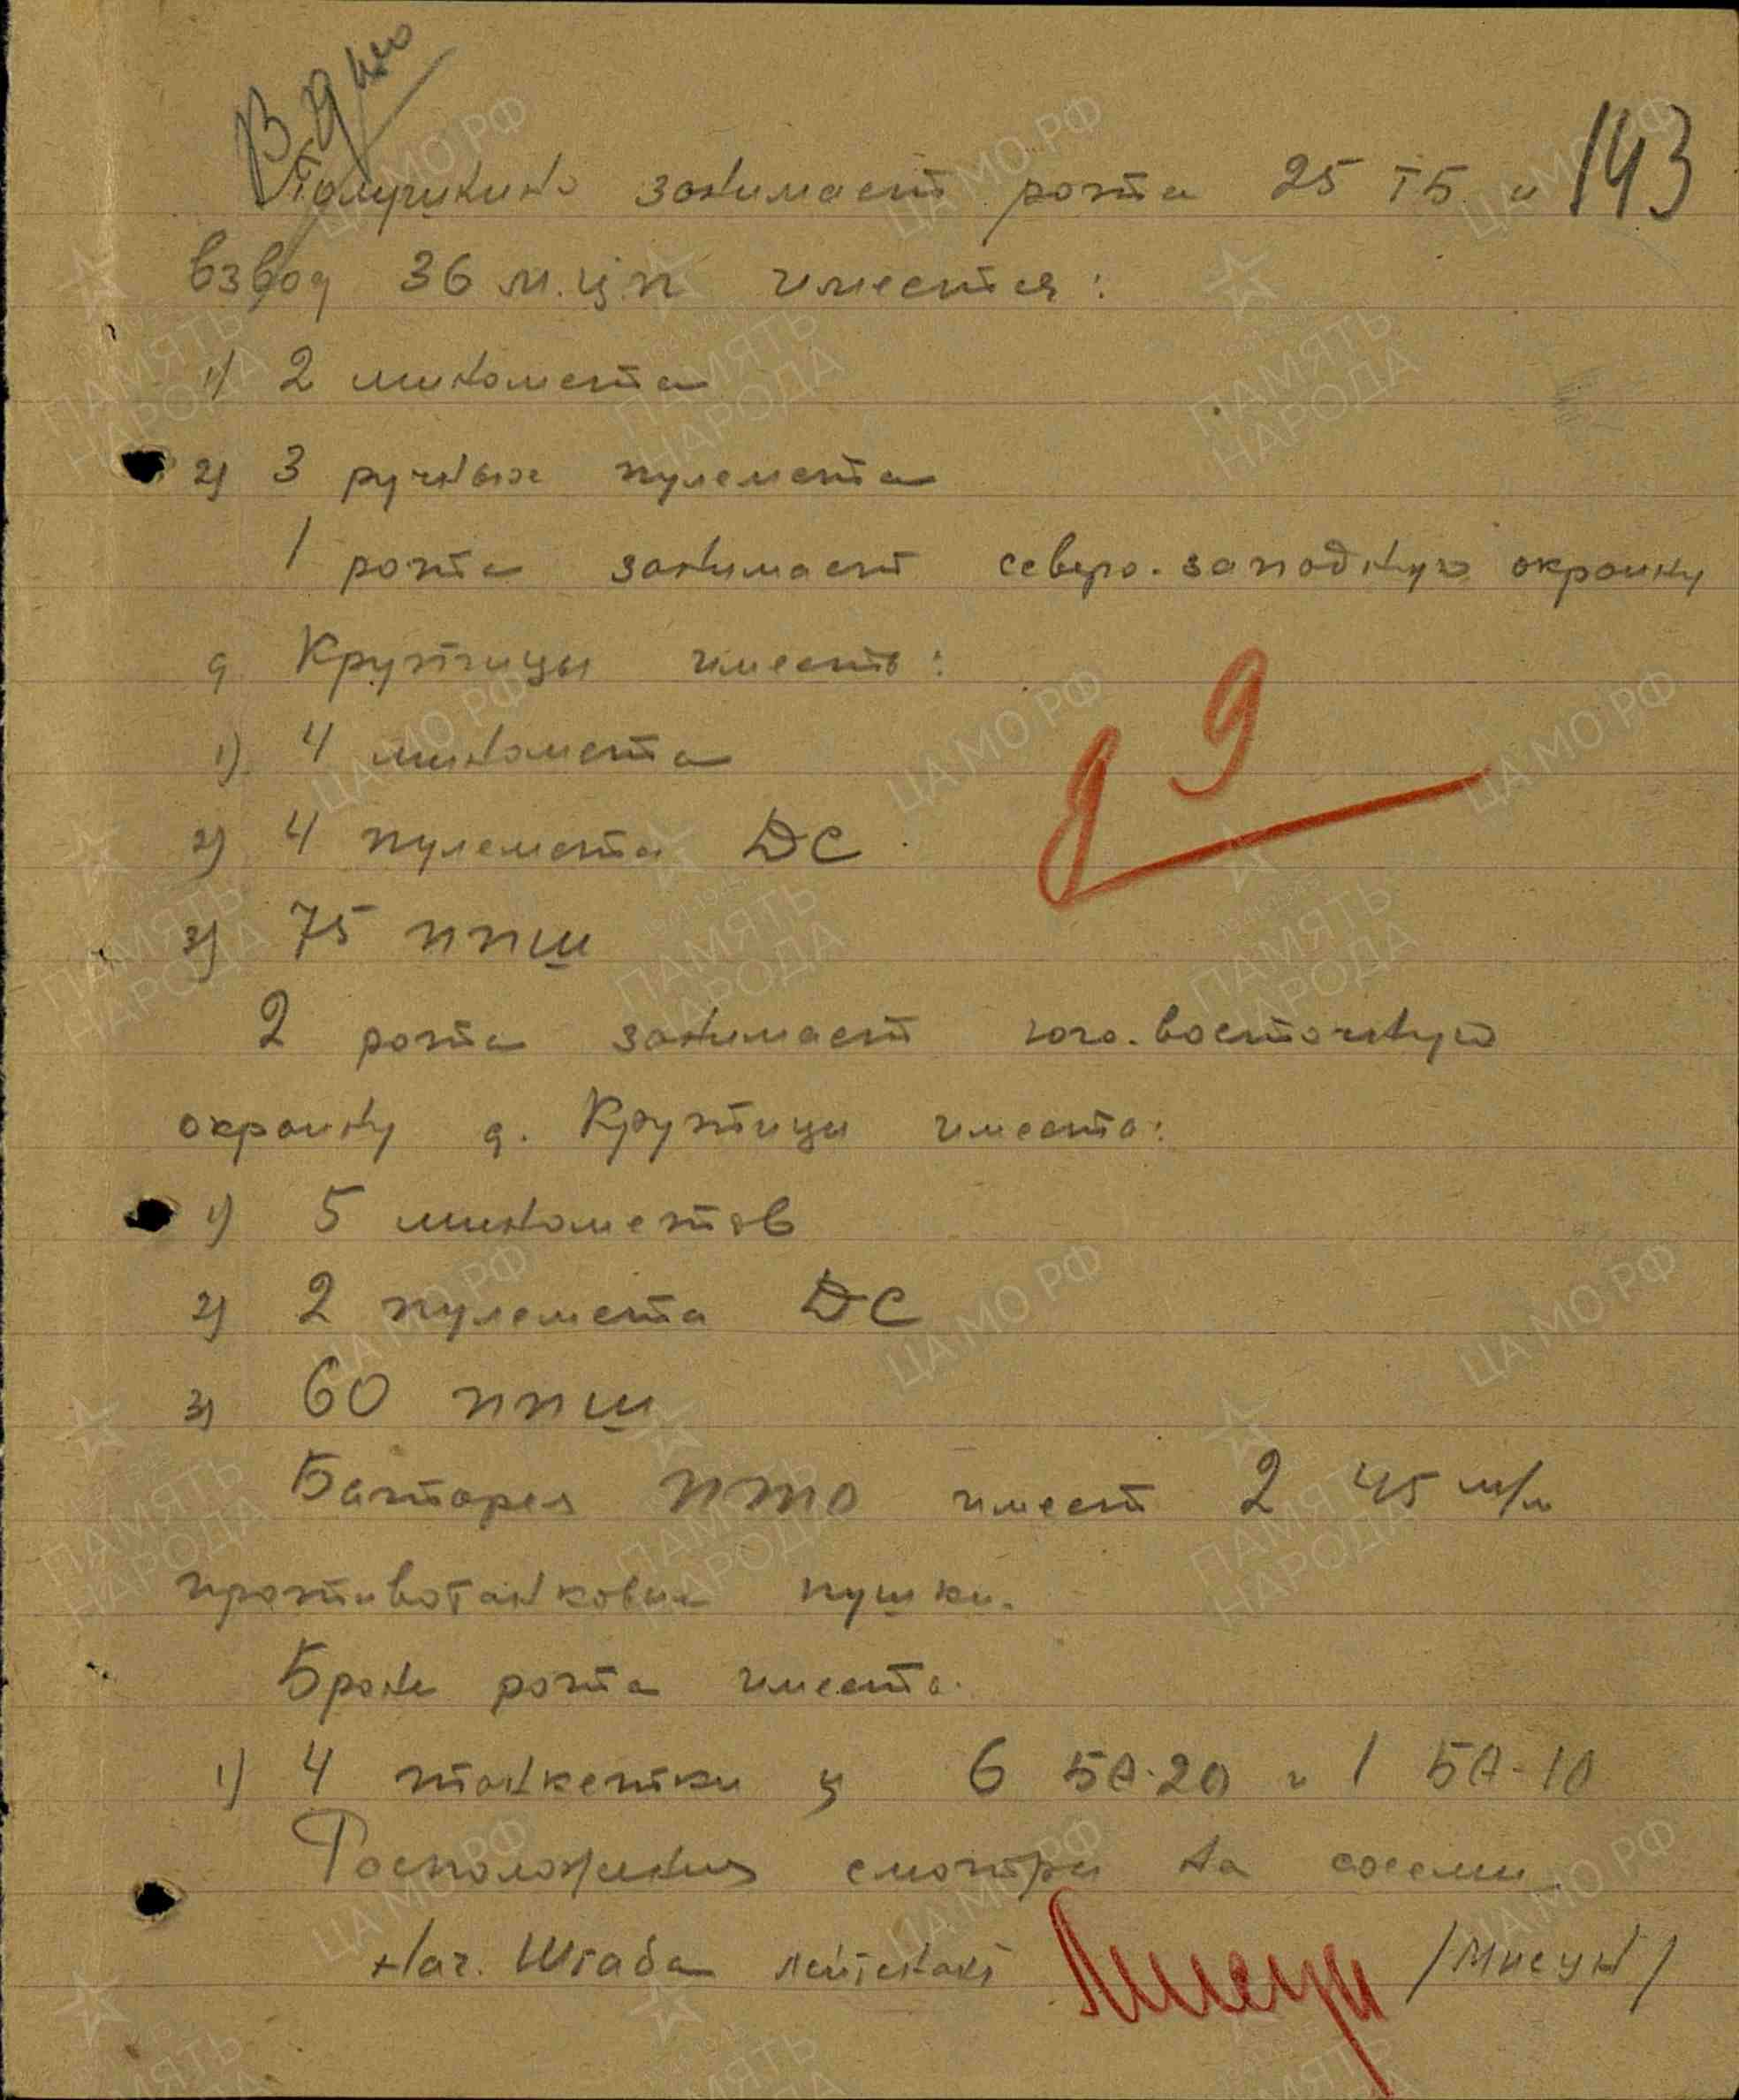 В дело
143
Полушкино занимает рота 25 ТБ и
взвод 36 м.ц.п имеется:
1) 2 миномета
2) 3 ручных пулемета
1 рота занимает северо.западную окраину
д Крутицы имеет:
1) 4 миномета
2) 4 пулемета ДС
3) 75 ППШ
2 рота занимает юго.восточную
окраину д. Крутицы имеет:
1) 5 минометов
2) 2 пулемета ДС
3) 60 ППШ
Батарея ПТО имеет 2 45 м/м
противотанковые пушки.
Броне рота имеет.
1) 4 танкетки 6 БА-20 и 1 БА-10
Расположения смотри на схеме
Нач. Штаба лейтенант /Мисун/